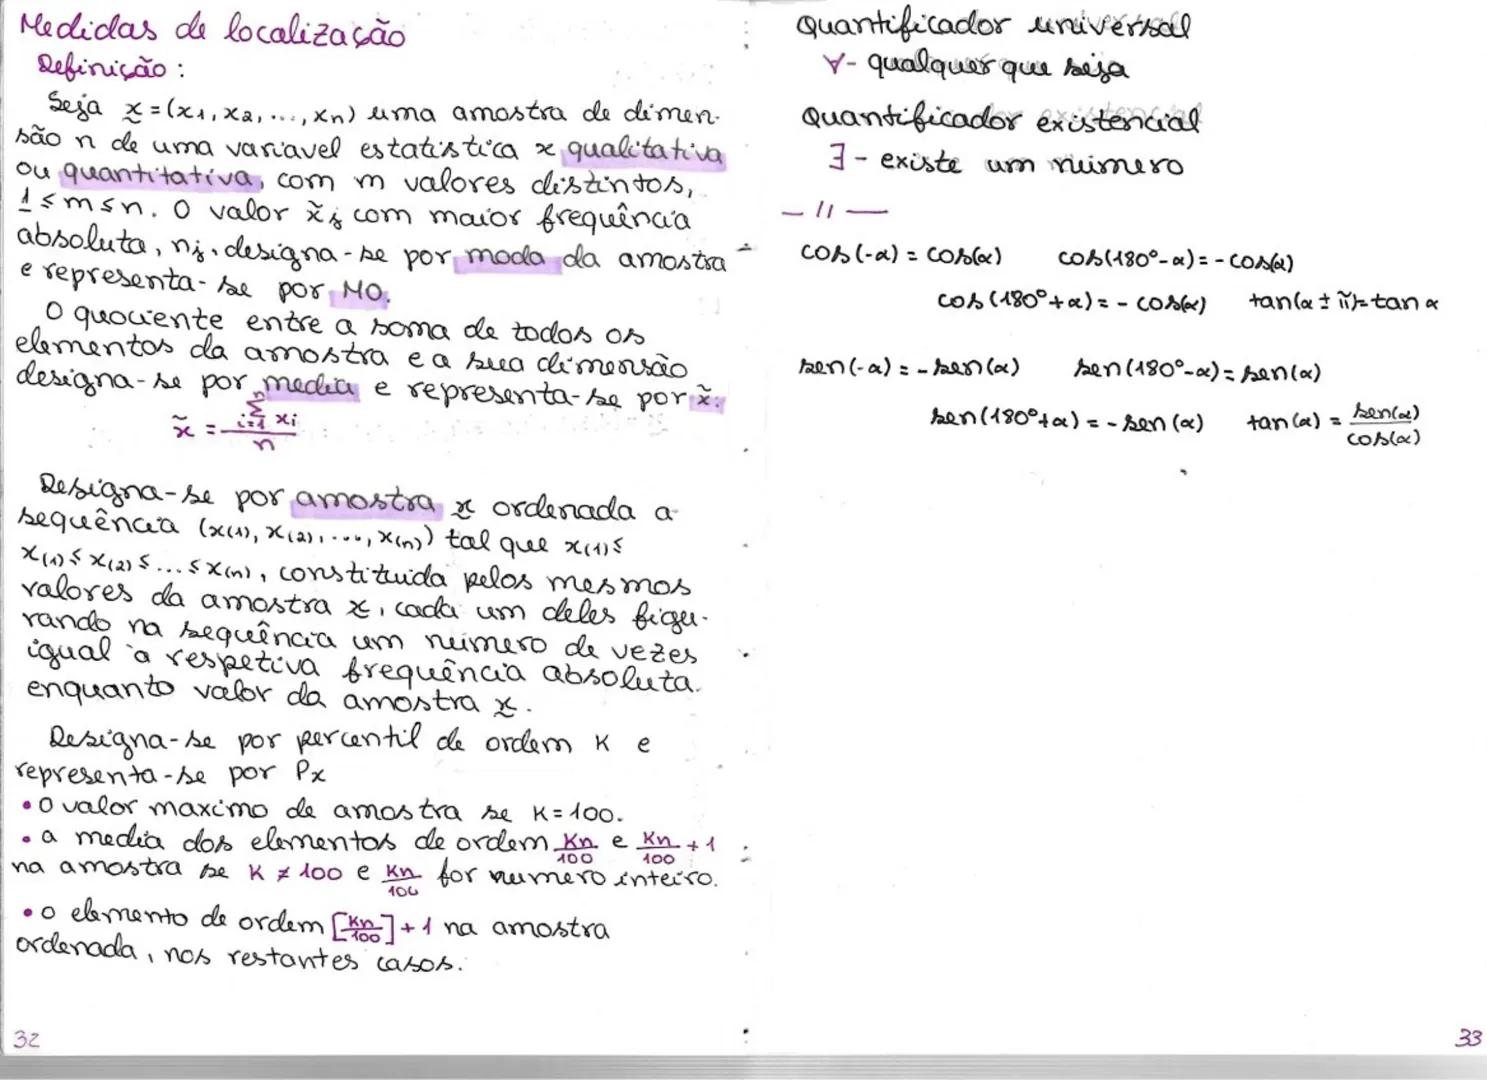 Medidas de localização
Definição:
Seja x̰ = (x₁, x₂, ..., xₙ) uma amostra de dimen-
são n de uma variavel estatistica x qualitativa
ou quantitativa, com m valores distintos,
1 ≤ m ≤ n. O valor x̃ⱼ com maior frequência
absoluta, nⱼ, designa-se por moda da amostra
e representa-se por MO.
O quociente entre a soma de todos os
elementos da amostra e a sua dimensão
designa-se por media e representa-se por x̃.
x̃ = \frac{\sum_{i=1}^{n} xᵢ}{n}
Designa-se por amostra x̰ ordenada a
sequência (x(1), x(2), ..., x(n)) tal que x(1) ≤
x(1) ≤ x(2) ≤ ... ≤ x(n), constituida pelos mesmos
valores da amostra x̰, cada um deles figu-
rando na sequência um número de vezes
igual à respetiva frequência absoluta
enquanto valor da amostra x̰.
Designa-se por percentil de ordem K e
representa-se por Px
• O valor maximo de amostra se K=100.
• a media dos elementos de ordem Kn/100 e Kn/100 + 1
na amostra se K ≠ 100 e Kn/100 for numero inteiro.
• o elemento de ordem [Kn/100] + 1 na amostra
ordenada, nos restantes casos.
32
Quantificador universal
∀ - qualquer que seja
Quantificador existencial
∃ - existe um número
— // —
cos(-α) = cos(α) cos(180°-α) = -cos(α)
cos(180°+α) = -cos(α) tan(α ± π) = tan α
sen(-α) = -sen(α) sen(180°-α) = sen(α)
sen(180°+α) = -sen(α) tan(α) = sen(α)/cos(α)
33